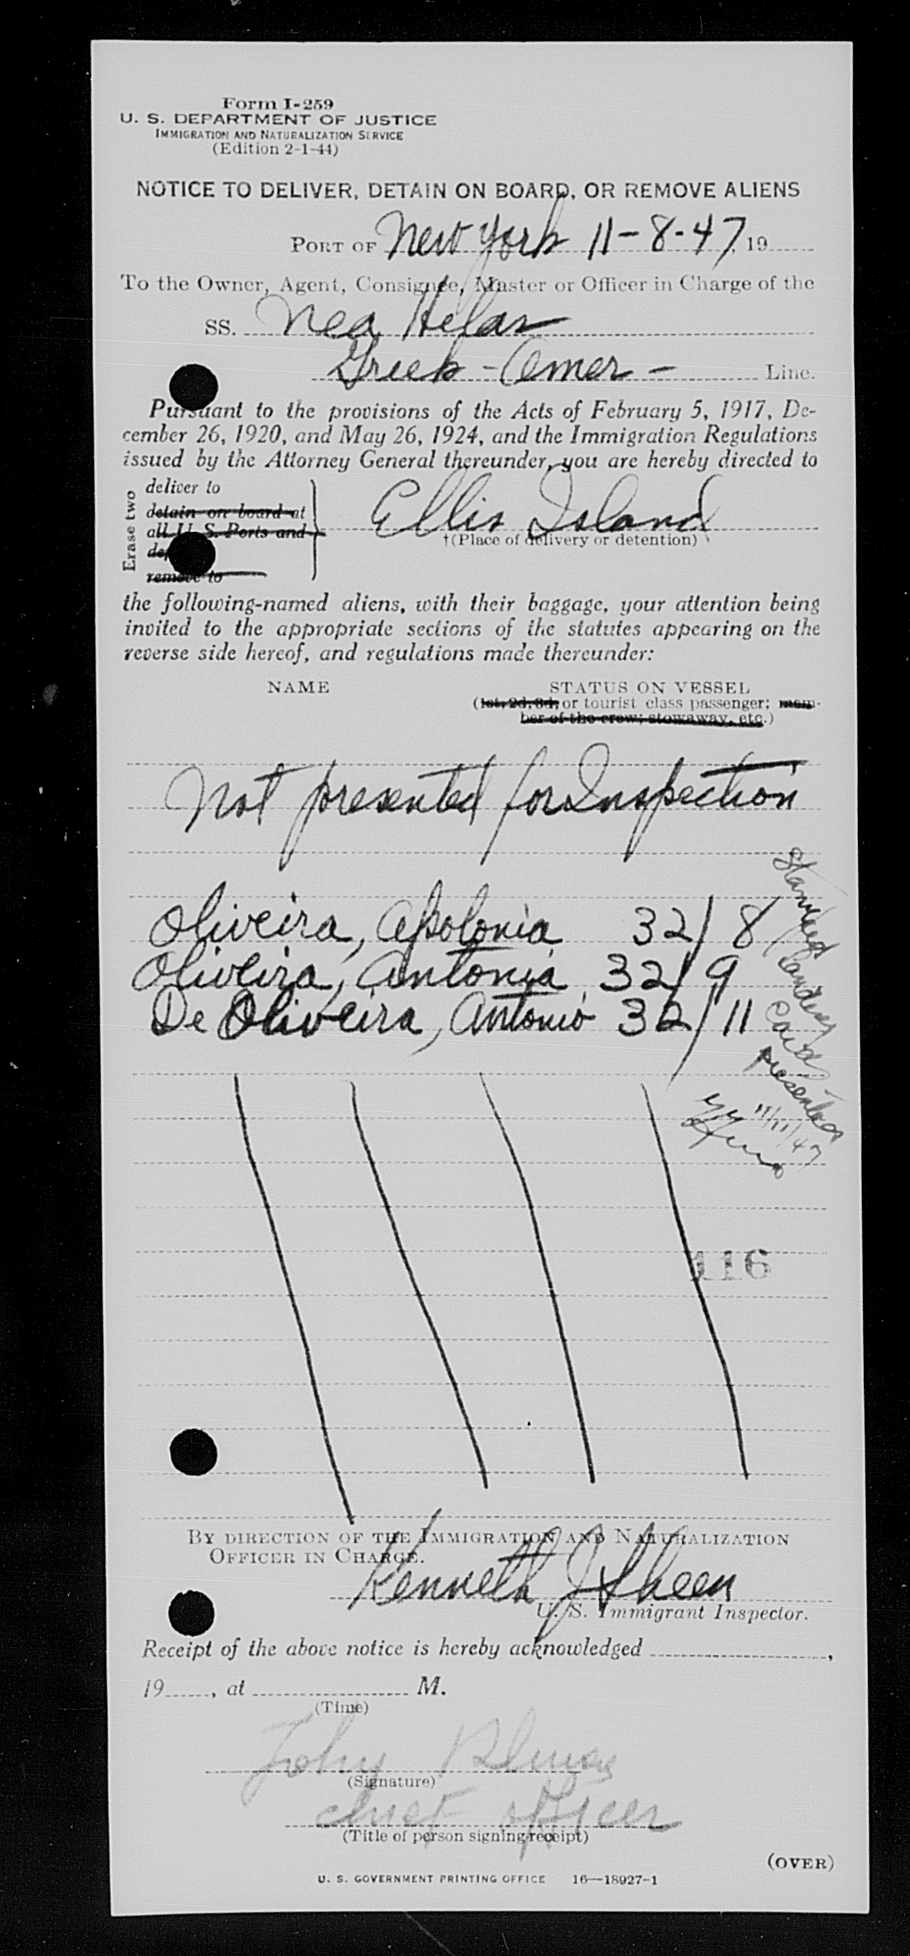 Form I-259
U. S. DEPARTMENT OF JUSTICE
IMMIGRATION AND NATURALIZATION SERVICE
(Edition 2-1-44)
NOTICE TO DELIVER, DETAIN ON BOARD, OR REMOVE ALIENS
PORT OF New York 11-8-47, 19
To the Owner, Agent, Consignee, Master or Officer in Charge of the
SS. Nea Hellas
Greek-Amer- Line.
Pursuant to the provisions of the Acts of February 5, 1917, De-
cember 26, 1920, and May 26, 1924, and the Immigration Regulations
issued by the Attorney General thereunder, you are hereby directed to
Erase two
deliver to
detain on board at
all U. S. Ports and
remove to
Ellis Island
†(Place of delivery or detention)
the following-named aliens, with their baggage, your attention being
invited to the appropriate sections of the statutes appearing on the
reverse side hereof, and regulations made thereunder:
NAME STATUS ON VESSEL
(1st, 2d, 3d, or tourist class passenger; mem-
ber of the crew; stowaway, etc.)
Not presented for Inspection
Oliveira, Apolonia 32/8
Oliveira, Antonia 32/9
De Oliveira, Antonio 32/11
Stamped
landing
card
presented
11/11/47
116
BY DIRECTION OF THE IMMIGRATION AND NATURALIZATION
OFFICER IN CHARGE.
Kenneth J Sheen
U. S. Immigrant Inspector.
Receipt of the above notice is hereby acknowledged ,
19 , at M.
(Time)
John
(Signature)
chief officer
(Title of person signing receipt)
(OVER)
U. S. GOVERNMENT PRINTING OFFICE 16—18927-1